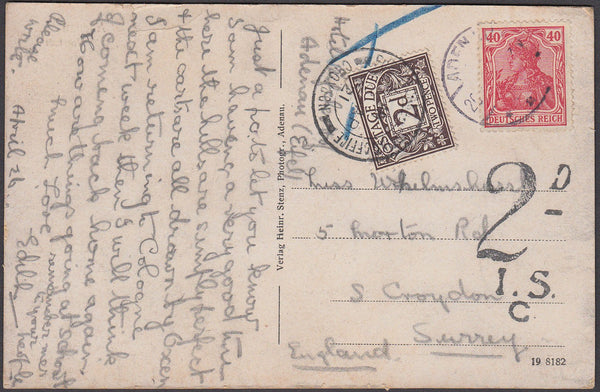 Just a p.c. to let you know
I am having a very good time
here the hills are simply perfect
& the carts are all drawn by Oxen
I am returning to Cologne
next week then I will think
of coming back home again.
How are things going at school
much love
remember me
to your
Edith
April 26
Please
write.
Adenau (Eifel)
Verlag Heinr. Stenz, Photogr., Adenau.
POSTAGE DUE
2d
TWO PENCE
CROYDON
40 40
DEUTSCHES REICH
ADEN
Miss Whelmshurst
5 Moxton Rd
S Croydon
Surrey
England
2 D
I. S.
C
19 8182